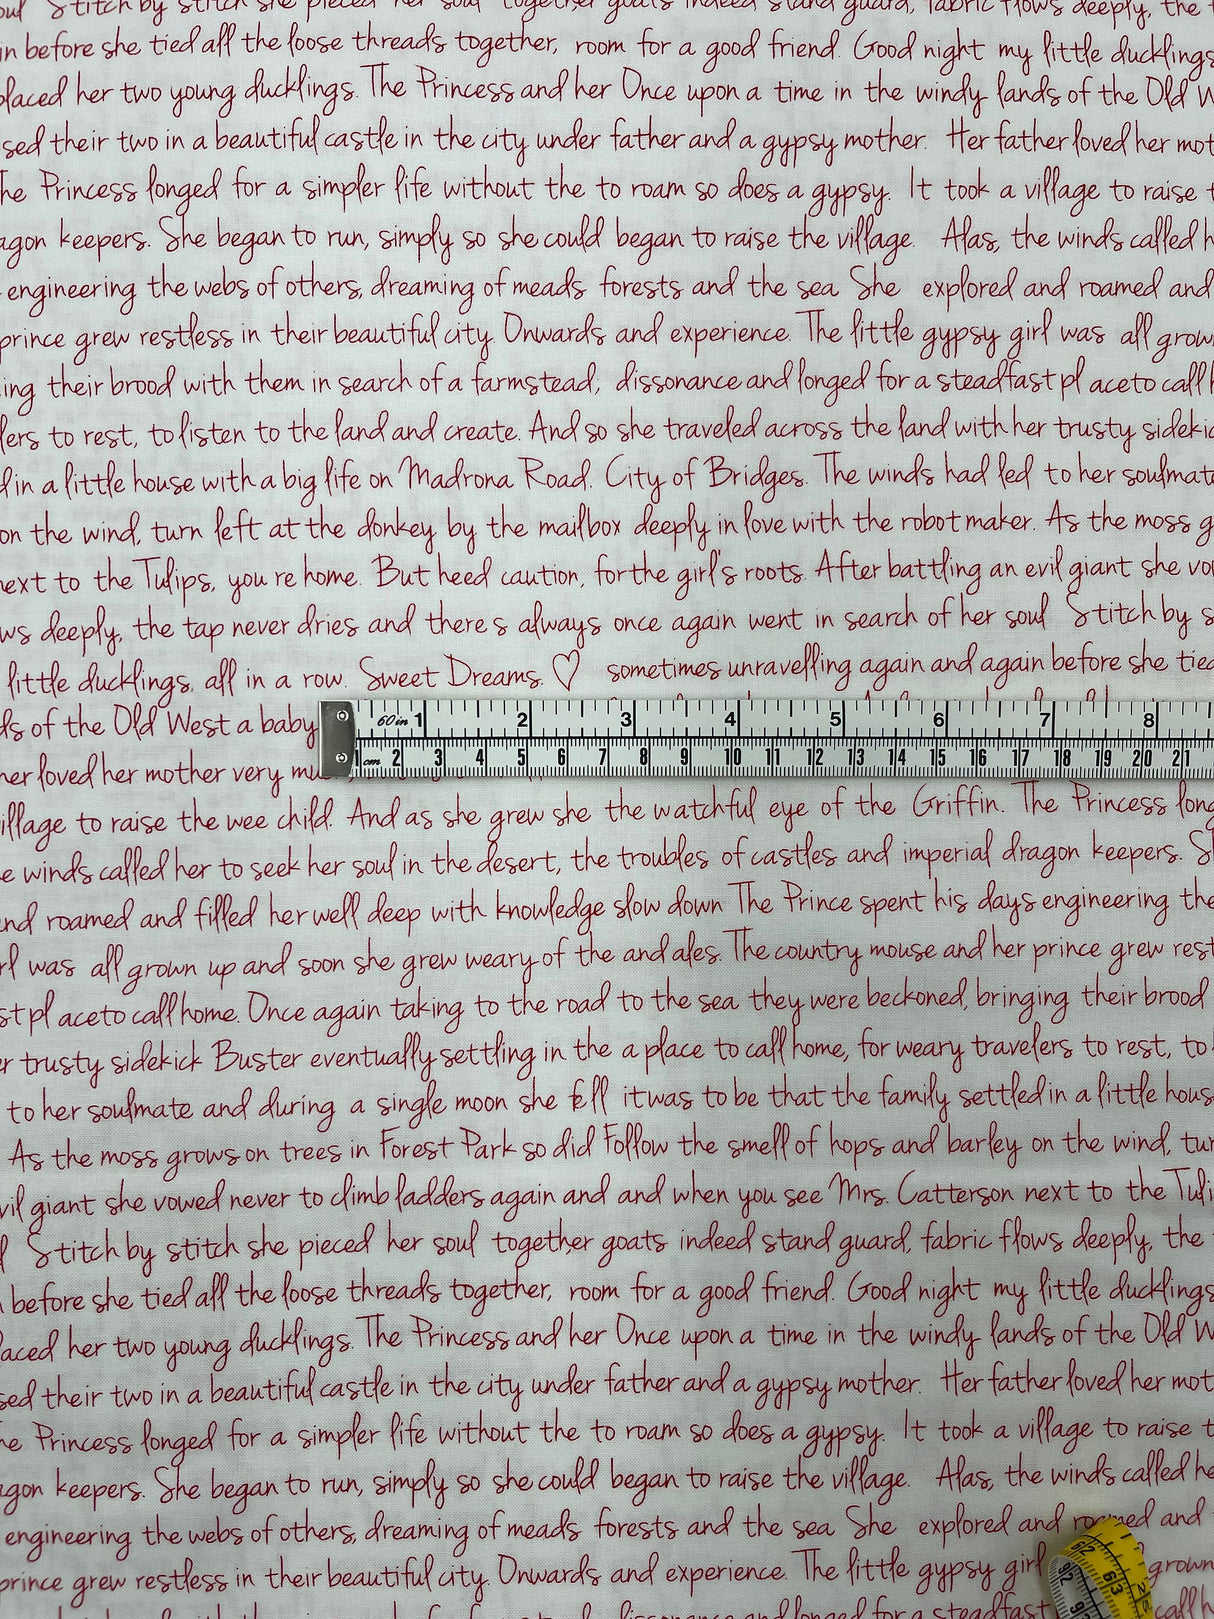 Stitch by stitch she pieced her soul together goats indeed stand guard, fabric flows deeply, the
before she tied all the loose threads together, room for a good friend. Good night my little ducklings
placed her two young ducklings. The Princess and her Once upon a time in the windy lands of the Old W
sed their two in a beautiful castle in the city under father and a gypsy mother. Her father loved her mot
he Princess longed for a simpler life without the to roam so does a gypsy. It took a village to raise t
agon keepers. She began to run, simply so she could began to raise the village. Alas, the winds called h
engineering the webs of others, dreaming of meads forests and the sea She explored and roamed and
prince grew restless in their beautiful city. Onwards and experience. The little gypsy girl was all grow
ing their brood with them in search of a farmstead, dissonance and longed for a steadfast pl aceto call h
lers to rest, to listen to the land and create. And so she traveled across the land with her trusty sidekic
d in a little house with a big life on Madrona Road. City of Bridges. The winds had led to her soulmate
on the wind, turn left at the donkey by the mailbox deeply in love with the robot maker. As the moss g
next to the Tulips, you re home. But heed caution, for the girl's roots. After battling an evil giant she vo
ws deeply, the tap never dries and there s always once again went in search of her soul Stitch by s
little ducklings, all in a row. Sweet Dreams. ♡ sometimes unravelling again and again before she tied
ds of the Old West a baby
60 in 1 2 3 4 5 6 7 8
1 cm 2 3 4 5 6 7 8 9 10 11 12 13 14 15 16 17 18 19 20 21
her loved her mother very mu
illage to raise the wee child. And as she grew she the watchful eye of the Griffin. The Princess long
e winds called her to seek her soul in the desert, the troubles of castles and imperial dragon keepers. S
and roamed and filled her well deep with knowledge slow down The Prince spent his days engineering the
rl was all grown up and soon she grew weary of the and ales. The country mouse and her prince grew rest
st pl aceto call home. Once again taking to the road to the sea they were beckoned, bringing their brood
r trusty sidekick Buster eventually settling in the a place to call home, for weary travelers to rest, to
to her soulmate and during a single moon she fell it was to be that the family settled in a little hous
As the moss grows on trees in Forest Park so did Follow the smell of hops and barley on the wind, tur
vil giant she vowed never to climb ladders again and and when you see Mrs. Catterson next to the Tuli
l Stitch by stitch she pieced her soul together goats indeed stand guard, fabric flows deeply, the
before she tied all the loose threads together, room for a good friend. Good night my little ducklings
laced her two young ducklings. The Princess and her Once upon a time in the windy lands of the Old W
sed their two in a beautiful castle in the city under father and a gypsy mother. Her father loved her mot
he Princess longed for a simpler life without the to roam so does a gypsy. It took a village to raise t
agon keepers. She began to run, simply so she could began to raise the village. Alas, the winds called he
engineering the webs of others, dreaming of meads forests and the sea She explored and roamed and
prince grew restless in their beautiful city. Onwards and experience. The little gypsy girl grown
dissonance and longed for a steadfast call h